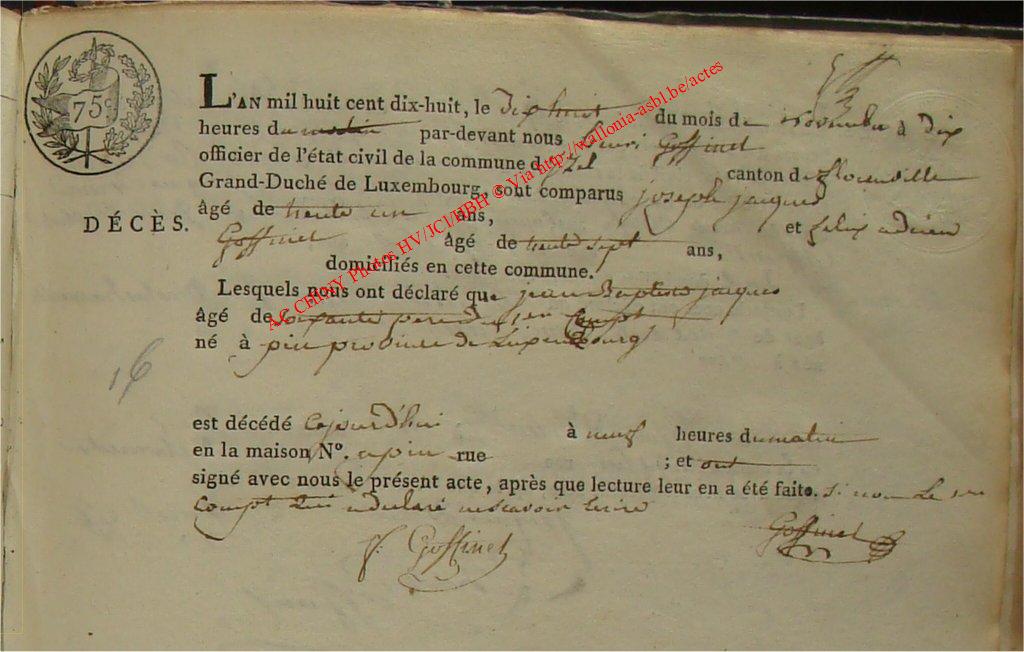 75 c
L'AN mil huit cent dix-huit, le dixhuit du mois de novembre à dix
heures du matin par-devant nous henri Goffinet
officier de l'état civil de la commune d'izel canton de florenville
Grand-Duché de Luxembourg, sont comparus joseph jacques
âgé de trente un ans, et felix adrien
Goffinet âgé de trente sept ans,
domiciliés en cette commune.
DÉCÈS.
Lesquels nous ont déclaré que jean Baptiste jacques
âgé de soixante pere du 1er Compt
né à pin province de Luxembourg
16
est décédé cejourd'hui à neuf heures du matin
en la maison N°. a pin rue ; et ont
signé avec nous le présent acte, après que lecture leur en a été faite. si non Le 1er
Compt qui a declaré ne scavoir Ecrire
f. Goffinet
Goffinet
AC CHINY Photos HV/JCl/HBH © Via http://wallonia-asbl.be/actes